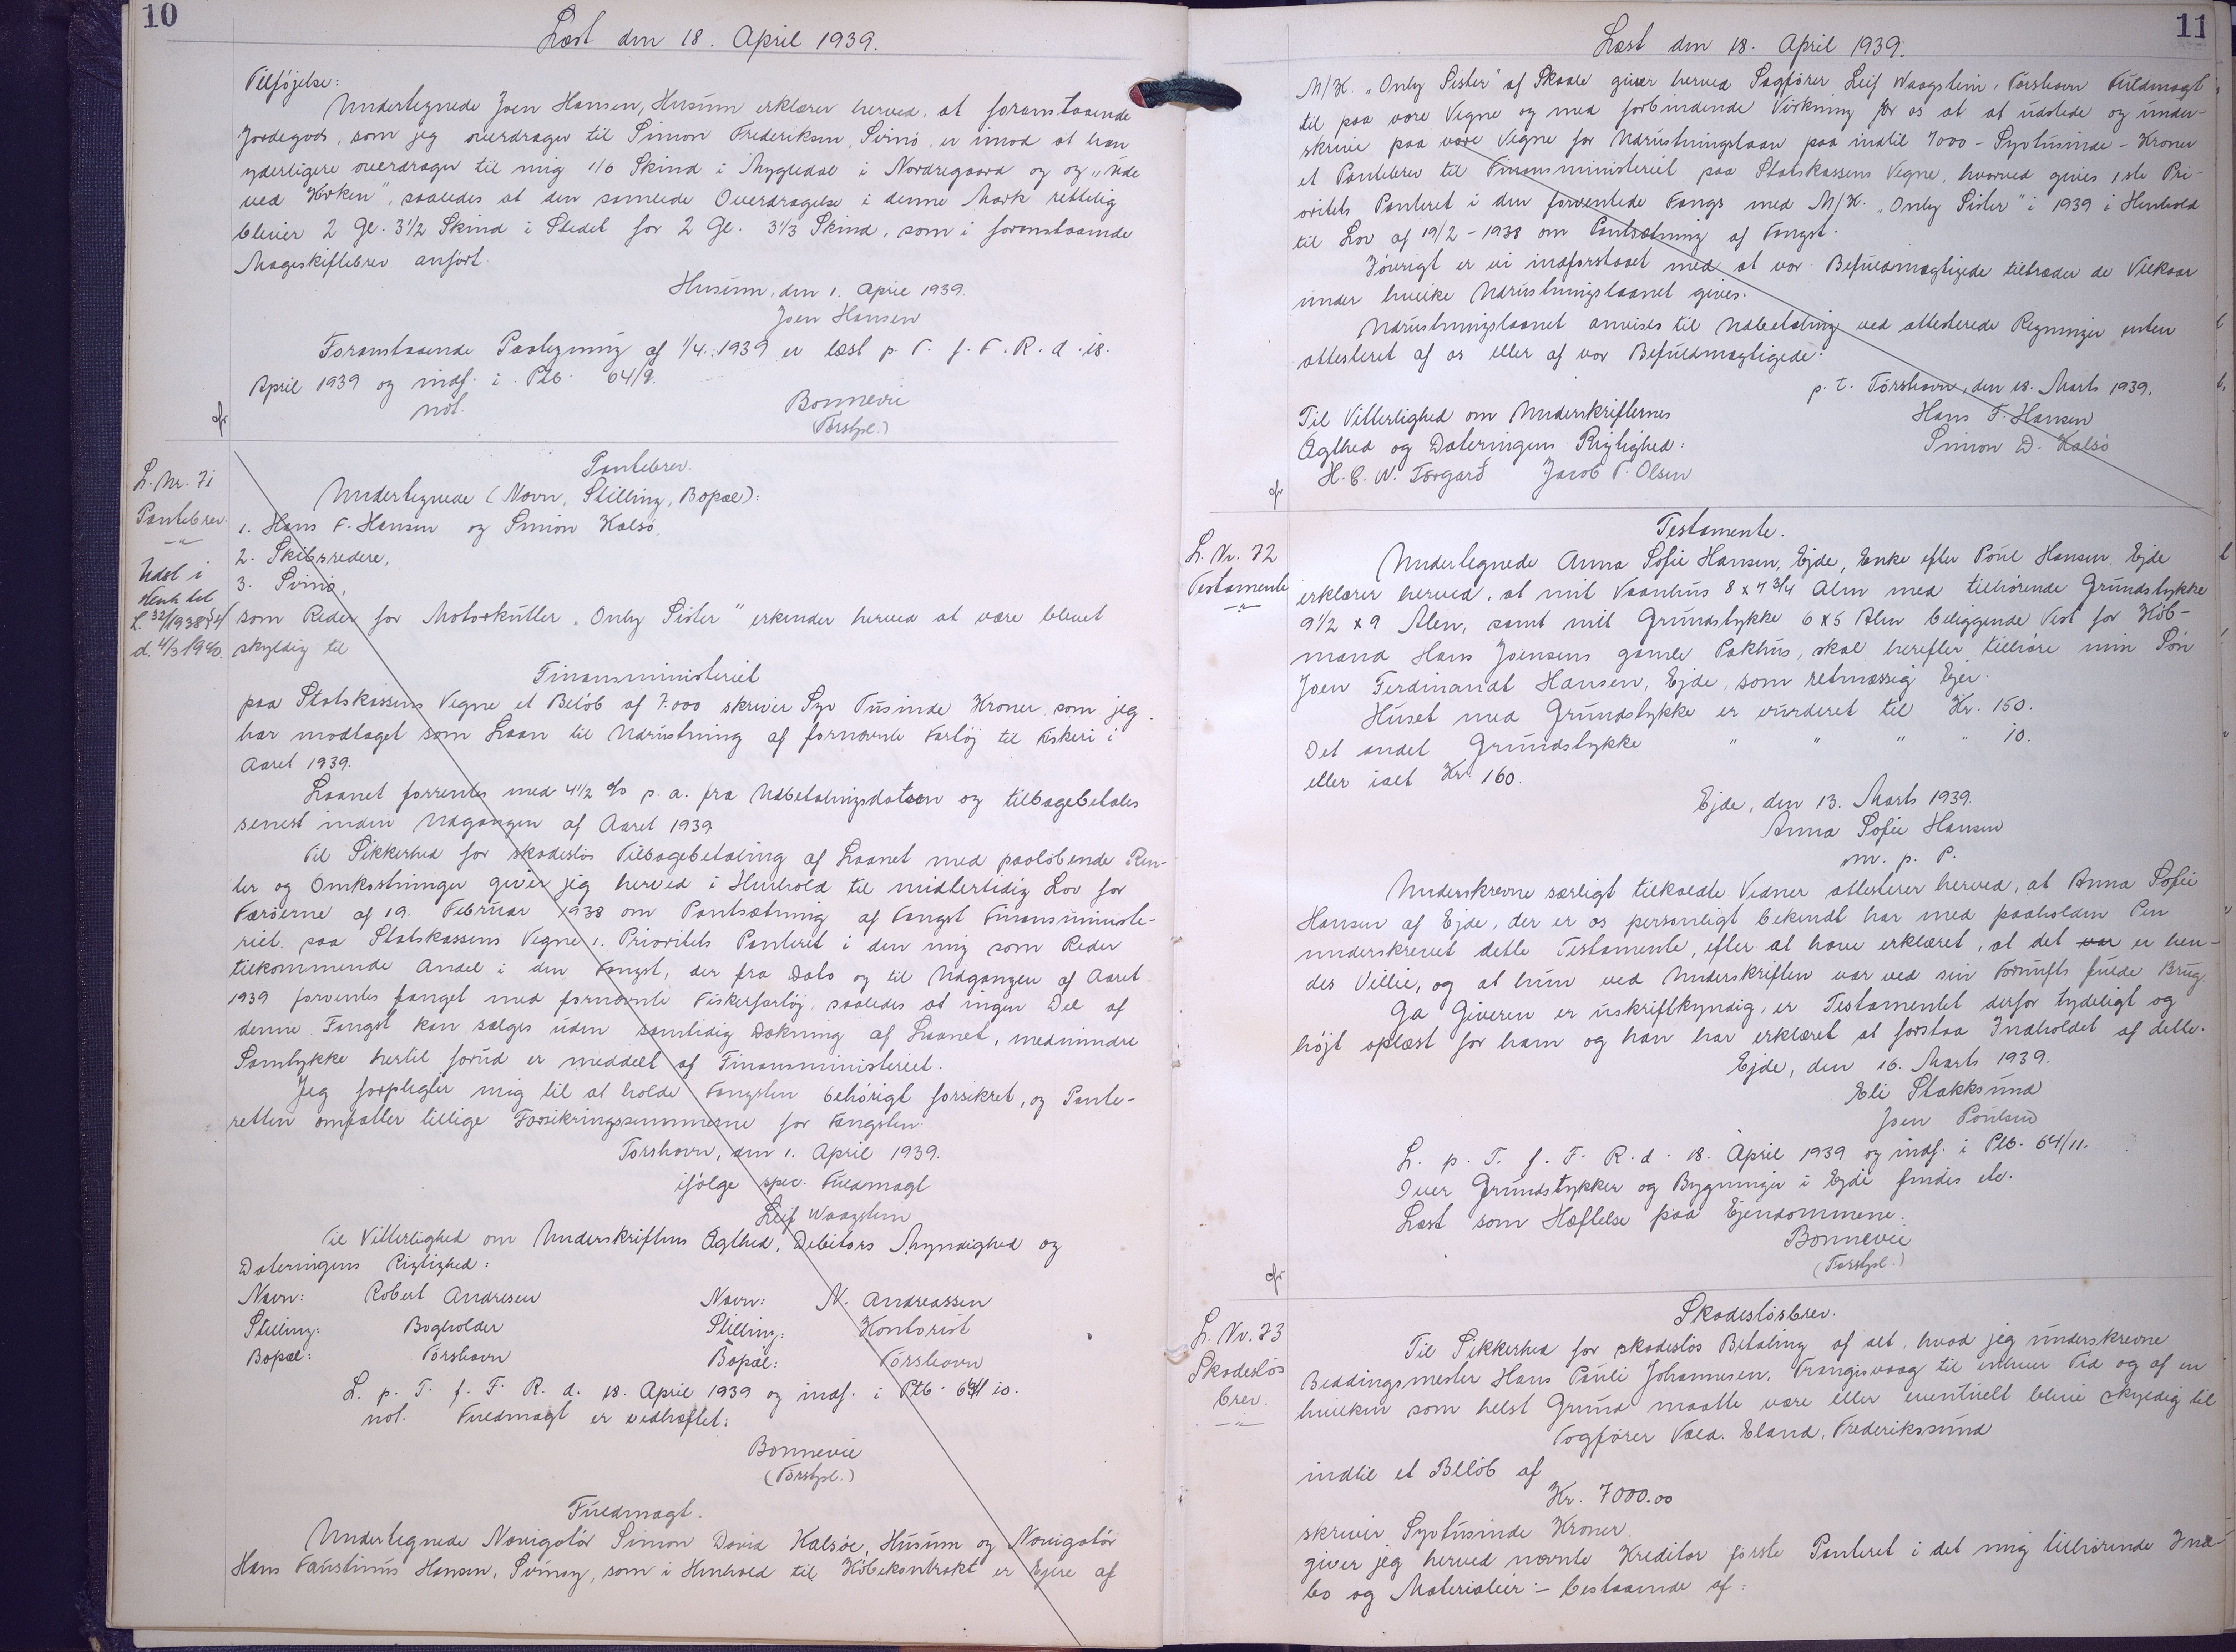 10
Læst den 18. April 1939.
Tilføjelse:
Undertegnede Joen Hansen, Husum erklærer herved, at foranstaaende
Jordegods, som jeg overdrager til Simon Frederiksen, Svinø, er imod at han
yderligere overdrager til mig 1/6 Skind i Mygledal i Nordregaard og og „Ude
ved Kirken", saaledes at den samlede Overdragelse i denne Mark rettelig
bliver 2 Gl. 3 1/2 Skind i Stedet for 2 Gl. 3 1/3 Skind, som i foranstaaende
Mageskiftebrev anført.
Husum, den 1. April 1939.
Joen Hansen
Foranstaaende Paategning af 1/4. 1939 er læst p. T. f. F. R. d. 18.
April 1939 og indf. i Ptb. 64/9.
not.
Bonnevie
(Torstpl.)
cfr
L. Nr. 71
Pantebrev.
Udsl i
Henh til
d. 4/3 1940.
Pantebrev.
Undertegnede (Navn, Stilling, Bopæl):
1. Hans F. Hansen og Simon Kalsø,
2. Skibsredere,
3. Svinø,
som Reder for Motorkutter „Only Sister" erkender herved at være blevet
skyldig til
Finansministeriet
paa Statskassens Vegne et Beløb af 7.000 skriver Syv Tusinde Kroner som jeg
har modtaget som Laan til Udrustning af fornævnte Fartøj til Fiskeri i
Aaret 1939.
Laanet forrentes med 4 1/2 % p. a. fra Udbetalingsdatoen og tilbagebetales
senest inden Udgangen af Aaret 1939
Til Sikkerhed for skadesløs Tilbagebetaling af Laanet med paaløbende Ren-
ter og Omkostninger giver jeg herved i Henhold til midlertidig Lov for
Færøerne af 19. Februar 1938 om Pantsætning af Fangst Finansministe-
riet paa Statskassens Vegne 1. Prioritets Panteret i den mig som Reder
tilkommende Andel i den Fangst, der fra Dato og til Udgangen af Aaret
1939 forventes fanget med fornævnte Fiskerfartøj, saaledes at ingen Del af
denne Fangst kan sælges uden samtidig Dækning af Laanet, medmindre
Samtykke hertil forud er meddelt af Finansministeriet.
Jeg forpligter mig til at holde Fangsten behørigt forsikret, og Pante-
retten omfatter tillige Forsikringssummerne for Fangsten.
Torshavn, den 1. April 1939.
ifølge spec. Fuldmagt
Leif Waagstein
Til Vitterlighed om Underskriftens Ægthed, Debitors Myndighed og
Dateringens Rigtighed:
Navn: Robert Andresen Navn: N. Andreassen
Stilling: Bogholder Stilling: Kontorist
Bopæl: Torshavn Bopæl: Torshavn
L. p. T. f. F. R. d. 18. April 1939 og indf. i Ptb. 64/10.
not. Fuldmagt er vedhæftet.
Bonnevie
(Torstpl.)
Fuldmagt.
Undertegnede Navigatør Simon David Kalsøe, Husum og Navigatør
Hans Faustinus Hansen, Svinøy, som i Henhold til Købekontrakt er Ejere af
11
Læst den 18. April 1939.
M/K. „Only Sister" af Skaale giver herved Sagfører Leif Waagstein, Torshavn Fuldmagt
til paa vore Vegne og med forbindende Virkning for os at at udstede og under-
skrive paa vore Vegne for Udrustningslaan paa indtil 7000 - Syvtusinde - Kroner
et Pantebrev til Finansministeriet paa Statskassens Vegne, hvorved gives 1ste Pri-
oritets Panteret i den forventede Fangs med M/K. „Only Sister" i 1939 i Henhold
til Lov af 19/2 - 1938 om Pantsætning af Fangst.
Iøvrigt er vi indforstaaet med at vor Befuldmægtigede tiltræder de Vilkaar
under hvilke Udrustningslaanet gives.
Udrustningslaanet anvises til Udbetaling ved attesterede Regninger enten
attesteret af os eller af vor Befuldmægtigede.
p. t. Torshavn, den 18. Marts 1939.
Til Vitterlighed om Underskrifternes Hans F. Hansen
Ægthed og Dateringens Rigtighed: Simon D. Kalsø
H. C. W. Tórgarð Jacob P. Olsen
cfr
L. Nr. 72
Testamente
Testamente.
Undertegnede Anna Sofie Hansen, Ejde, Enke efter Poul Hansen, Ejde
erklærer herved, at mit Vaanhus 8 x 7 3/4 Alen med tilhørende Grundstykke
9 1/2 x 9 Alen, samt mit Grundstykke 6 x 5 Alen beliggende Vest for Køb-
mand Hans Joensens gamle Pakhus, skal herefter tilhøre min Søn
Joen Ferdinandt Hansen, Ejde, som retmæssig Ejer.
Huset med Grundstykke er vurderet til Kr. 150.
Det andet Grundstykke " " " " 10.
eller ialt Kr. 160.
Ejde, den 13. Marts 1939.
Anna Sofie Hansen
m. p. P.
Underskrevne særligt tilkaldte Vidner attesterer herved, at Anna Sofie
Hansen af Ejde, der er os personligt bekendt har med paaholden Pen
underskrevet dette Testamente, efter at have erklæret, at det var er hen-
des Villie, og at hun ved Underskriften var ved sin Fornufts fulde Brug.
Da Giveren er uskriftkyndig, er Testamentet derfor tydeligt og
højt oplæst for ham og han har erklæret at forstaa Indholdet af dette.
Ejde, den 16. Marts 1939.
Eli Stakksund
Joen Poulsen
L. p. T. f. F. R. d. 18. April 1939 og indf. i Ptb. 64/11.
Over Grundstykker og Bygninger i Ejde findes etc.
Læst som Hæftelse paa Ejendommene.
Bonnevie
(Torstpl.)
cfr
L. Nr. 73
Skadesløs
brev.
Skadesløsbrev.
Til Sikkerhed for skadesløs Betaling af alt, hvad jeg underskrevne
Beddingsmester Hans Pauli Johannesen, Trangisvaag til enhver Tid og af en
hvilken som helst Grund maatte være eller eventuelt blive skyldig til
Fogfører Vald. Eland, Frederikssund
indtil et Beløb af
Kr. 7000.00
skriver Syvtusinde Kroner
giver jeg herved nævnte Kreditor første Panteret i det mig tilhørende Ind-
bo og Materialier :- bestaaende af: